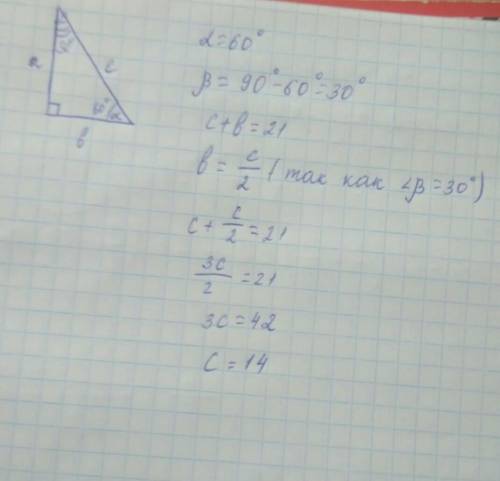 a
c
60° α
b
α=60°
β = 90°-60°=30°
c+b=21
b = c/2 (так как ∠β=30°)
c+ c/2 =21
3c/2 =21
3c=42
c=14